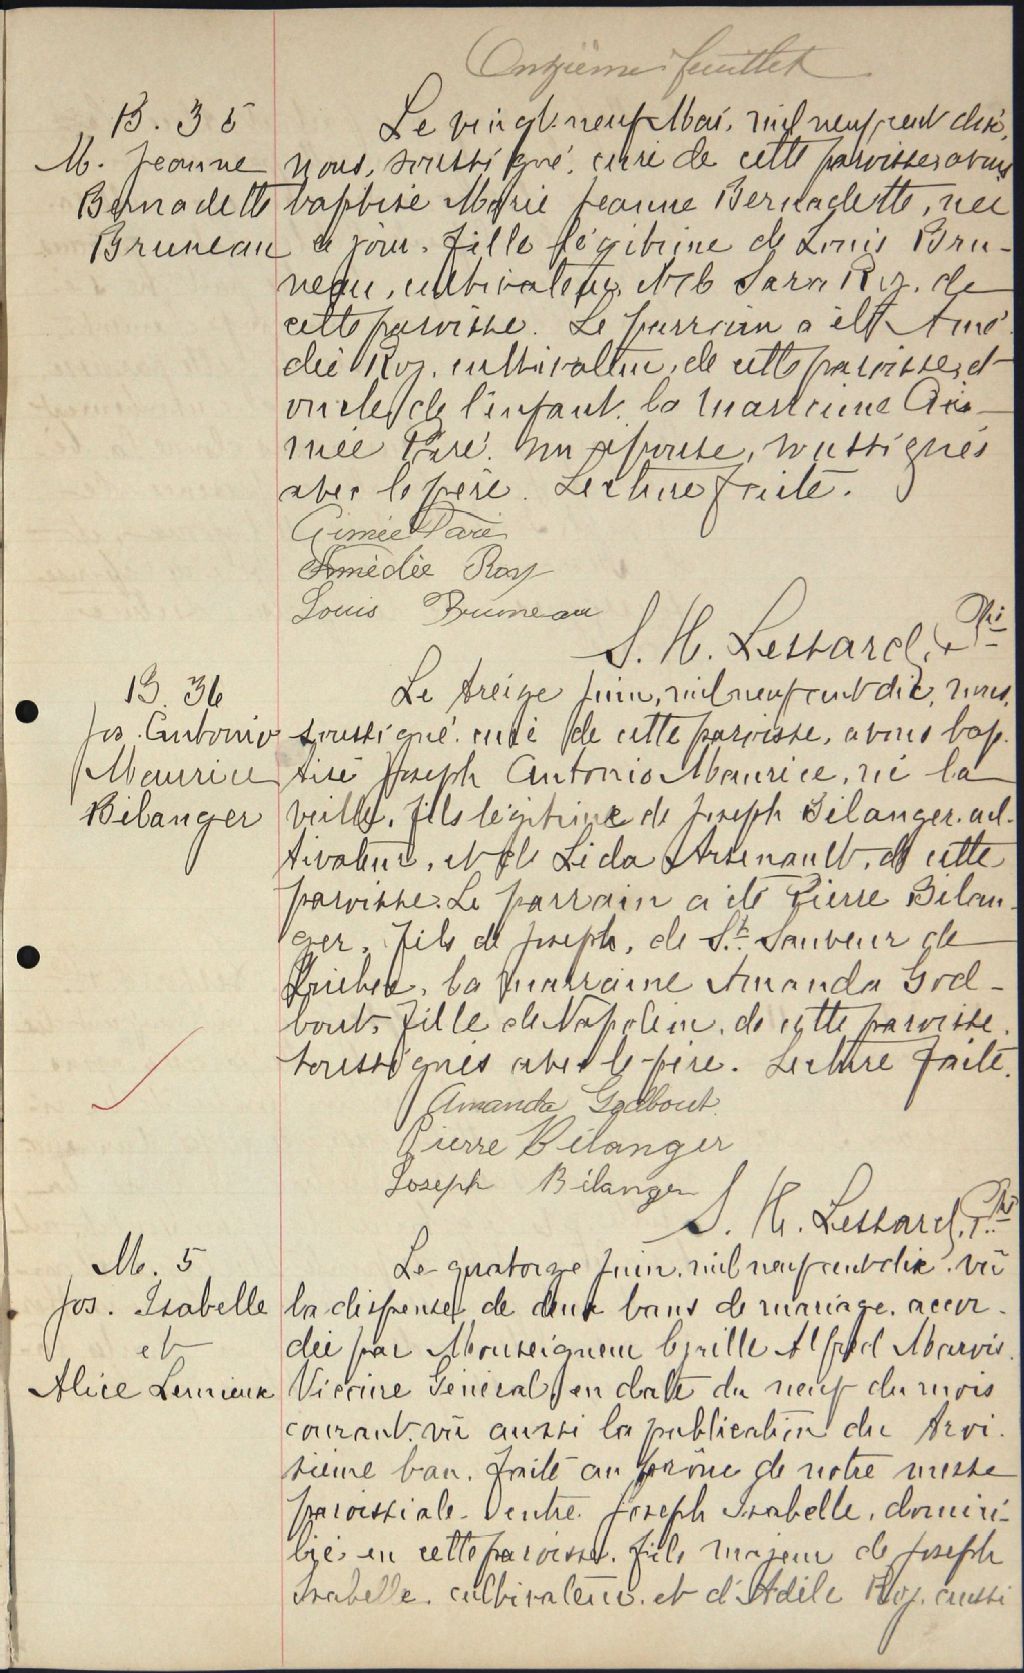 Onzième feuillet
B. 35
M. Jeanne
Bernadette
Bruneau
Le vingt-neuf Mai, mil neuf cent dix,
nous, soussigné, curé de cette paroisse, avons
baptisé Marie Jeanne Bernadette, née
ce jour, fille légitime de Louis Bru-
neau, cultivateur, et de Sara Roy, de
cette paroisse. Le parrain a été Amé-
dée Roy, cultivateur, de cette paroisse, et
oncle de l'enfant, la marraine Ai-
mée Paré, son épouse, soussignés
avec le père. Lecture faite.
Aimée Paré
Amédée Roy
Louis Bruneau
S. H. Lessard, Ptre
B. 36
Jos. Antonio
Maurice
Bélanger
Le treize Juin, mil neuf cent dix, nous,
soussigné, curé de cette paroisse, avons bap-
tisé Joseph Antonio Maurice, né la
veille, fils légitime de Joseph Bélanger, cul-
tivateur, et de Lida Arsenault, de cette
paroisse. Le parrain a été Pierre Bélan-
ger, fils de Joseph, de St. Sauveur de
Québec, la marraine Amanda God-
bout, fille de Napoléon, de cette paroisse,
soussignés avec le père. Lecture faite.
Amanda Godbout
Pierre Bélanger
Joseph Bélanger
S. H. Lessard, Ptre
M. 5
Jos. Isabelle
et
Alice Lemieux
Le quatorze Juin, mil neuf cent dix, vû
la dispense de deux bans de mariage, accor-
dée par Monseigneur Cyrille Alfred Marois,
Vicaire Général, en date du neuf du mois
courant, vû aussi la publication du troi-
sième ban, faite au prône de notre messe
paroissiale, entre Joseph Isabelle, domici-
lié en cette paroisse, fils majeur de Joseph
Isabelle, cultivateur, et d'Adèle Roy, aussi